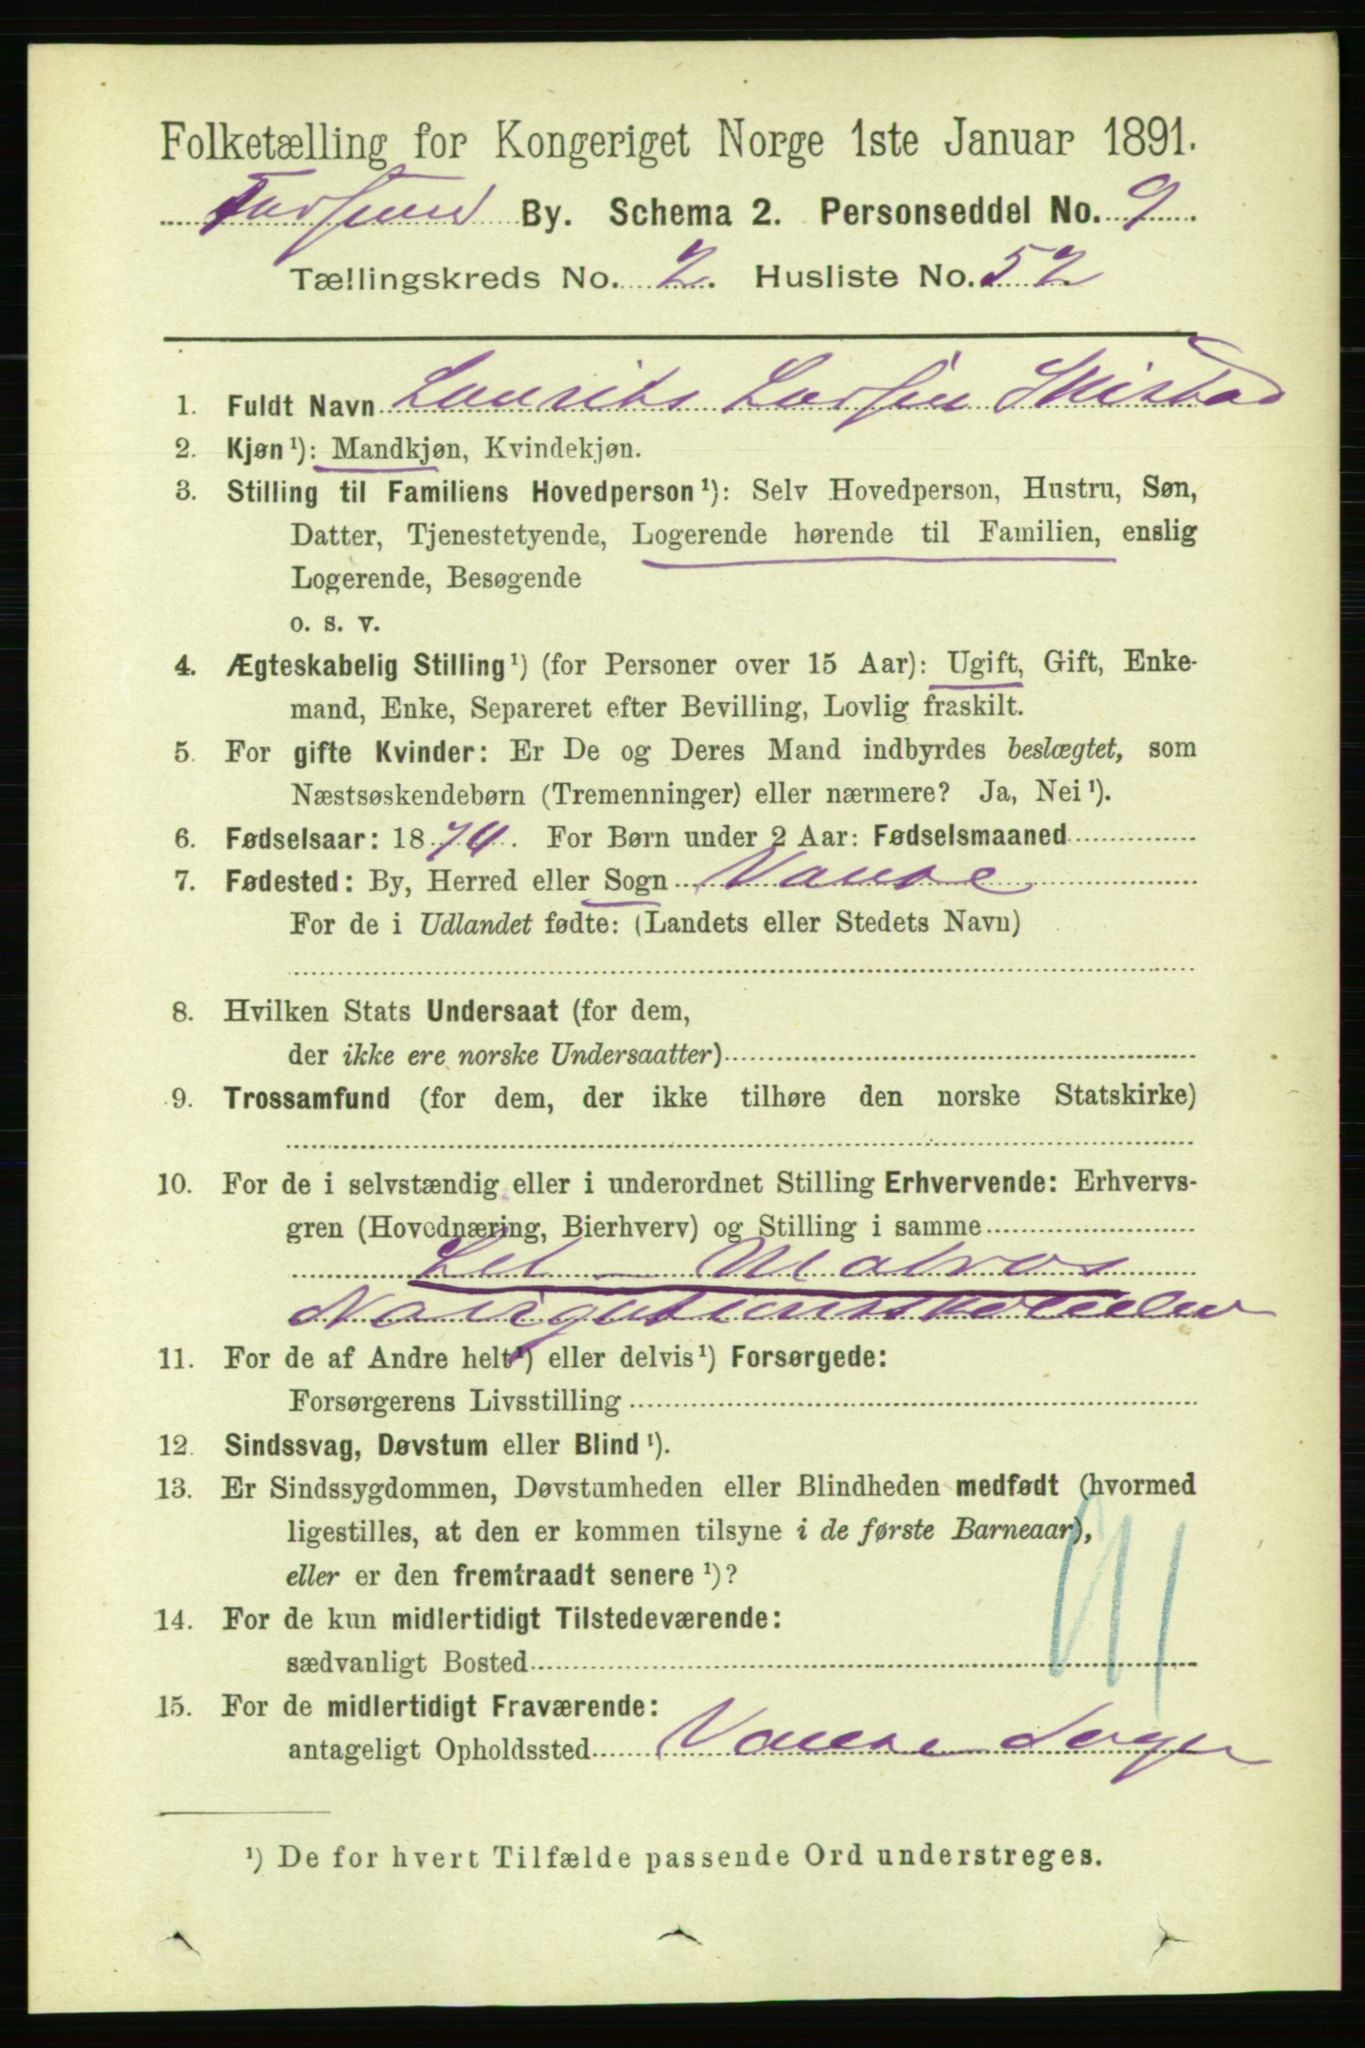 Folketælling for Kongeriget Norge 1ste Januar 1891.
Farsund By. Schema 2. Personseddel No. 9.
Tællingskreds No. 2. Husliste No. 52
1. Fuldt Navn Laurits Larsen
2. Kjøn¹): Mandkjøn, Kvindekjøn.
3. Stilling til Familiens Hovedperson¹): Selv Hovedperson, Hustru, Søn,
Datter, Tjenestetyende, Logerende hørende til Familien, enslig
Logerende, Besøgende
o. s. v.
4. Ægteskabelig Stilling¹) (for Personer over 15 Aar): Ugift, Gift, Enke-
mand, Enke, Separeret efter Bevilling, Lovlig fraskilt.
5. For gifte Kvinder: Er De og Deres Mand indbyrdes beslægtet, som
Næstsøskendebørn (Tremenninger) eller nærmere? Ja, Nei¹).
6. Fødselsaar: 1874. For Børn under 2 Aar: Fødselsmaaned
7. Fødested: By, Herred eller Sogn Vanse
For de i Udlandet fødte: (Landets eller Stedets Navn)
8. Hvilken Stats Undersaat (for dem,
der ikke ere norske Undersaatter)
9. Trossamfund (for dem, der ikke tilhøre den norske Statskirke)
10. For de i selvstændig eller i underordnet Stilling Erhvervende: Erhvervs-
gren (Hovednæring, Bierhverv) og Stilling i samme
Let Matros
Navigationsskoleelev
11. For de af Andre helt¹) eller delvis¹) Forsørgede:
Forsørgerens Livsstilling
12. Sindssvag, Døvstum eller Blind¹).
13. Er Sindssygdommen, Døvstumheden eller Blindheden medfødt (hvormed
ligestilles, at den er kommen tilsyne i de første Barneaar),
eller er den fremtraadt senere¹)?
14. For de kun midlertidigt Tilstedeværende:
sædvanligt Bosted
15. For de midlertidigt Fraværende:
antageligt Opholdssted Vanse Sogn
¹) De for hvert Tilfælde passende Ord understreges.